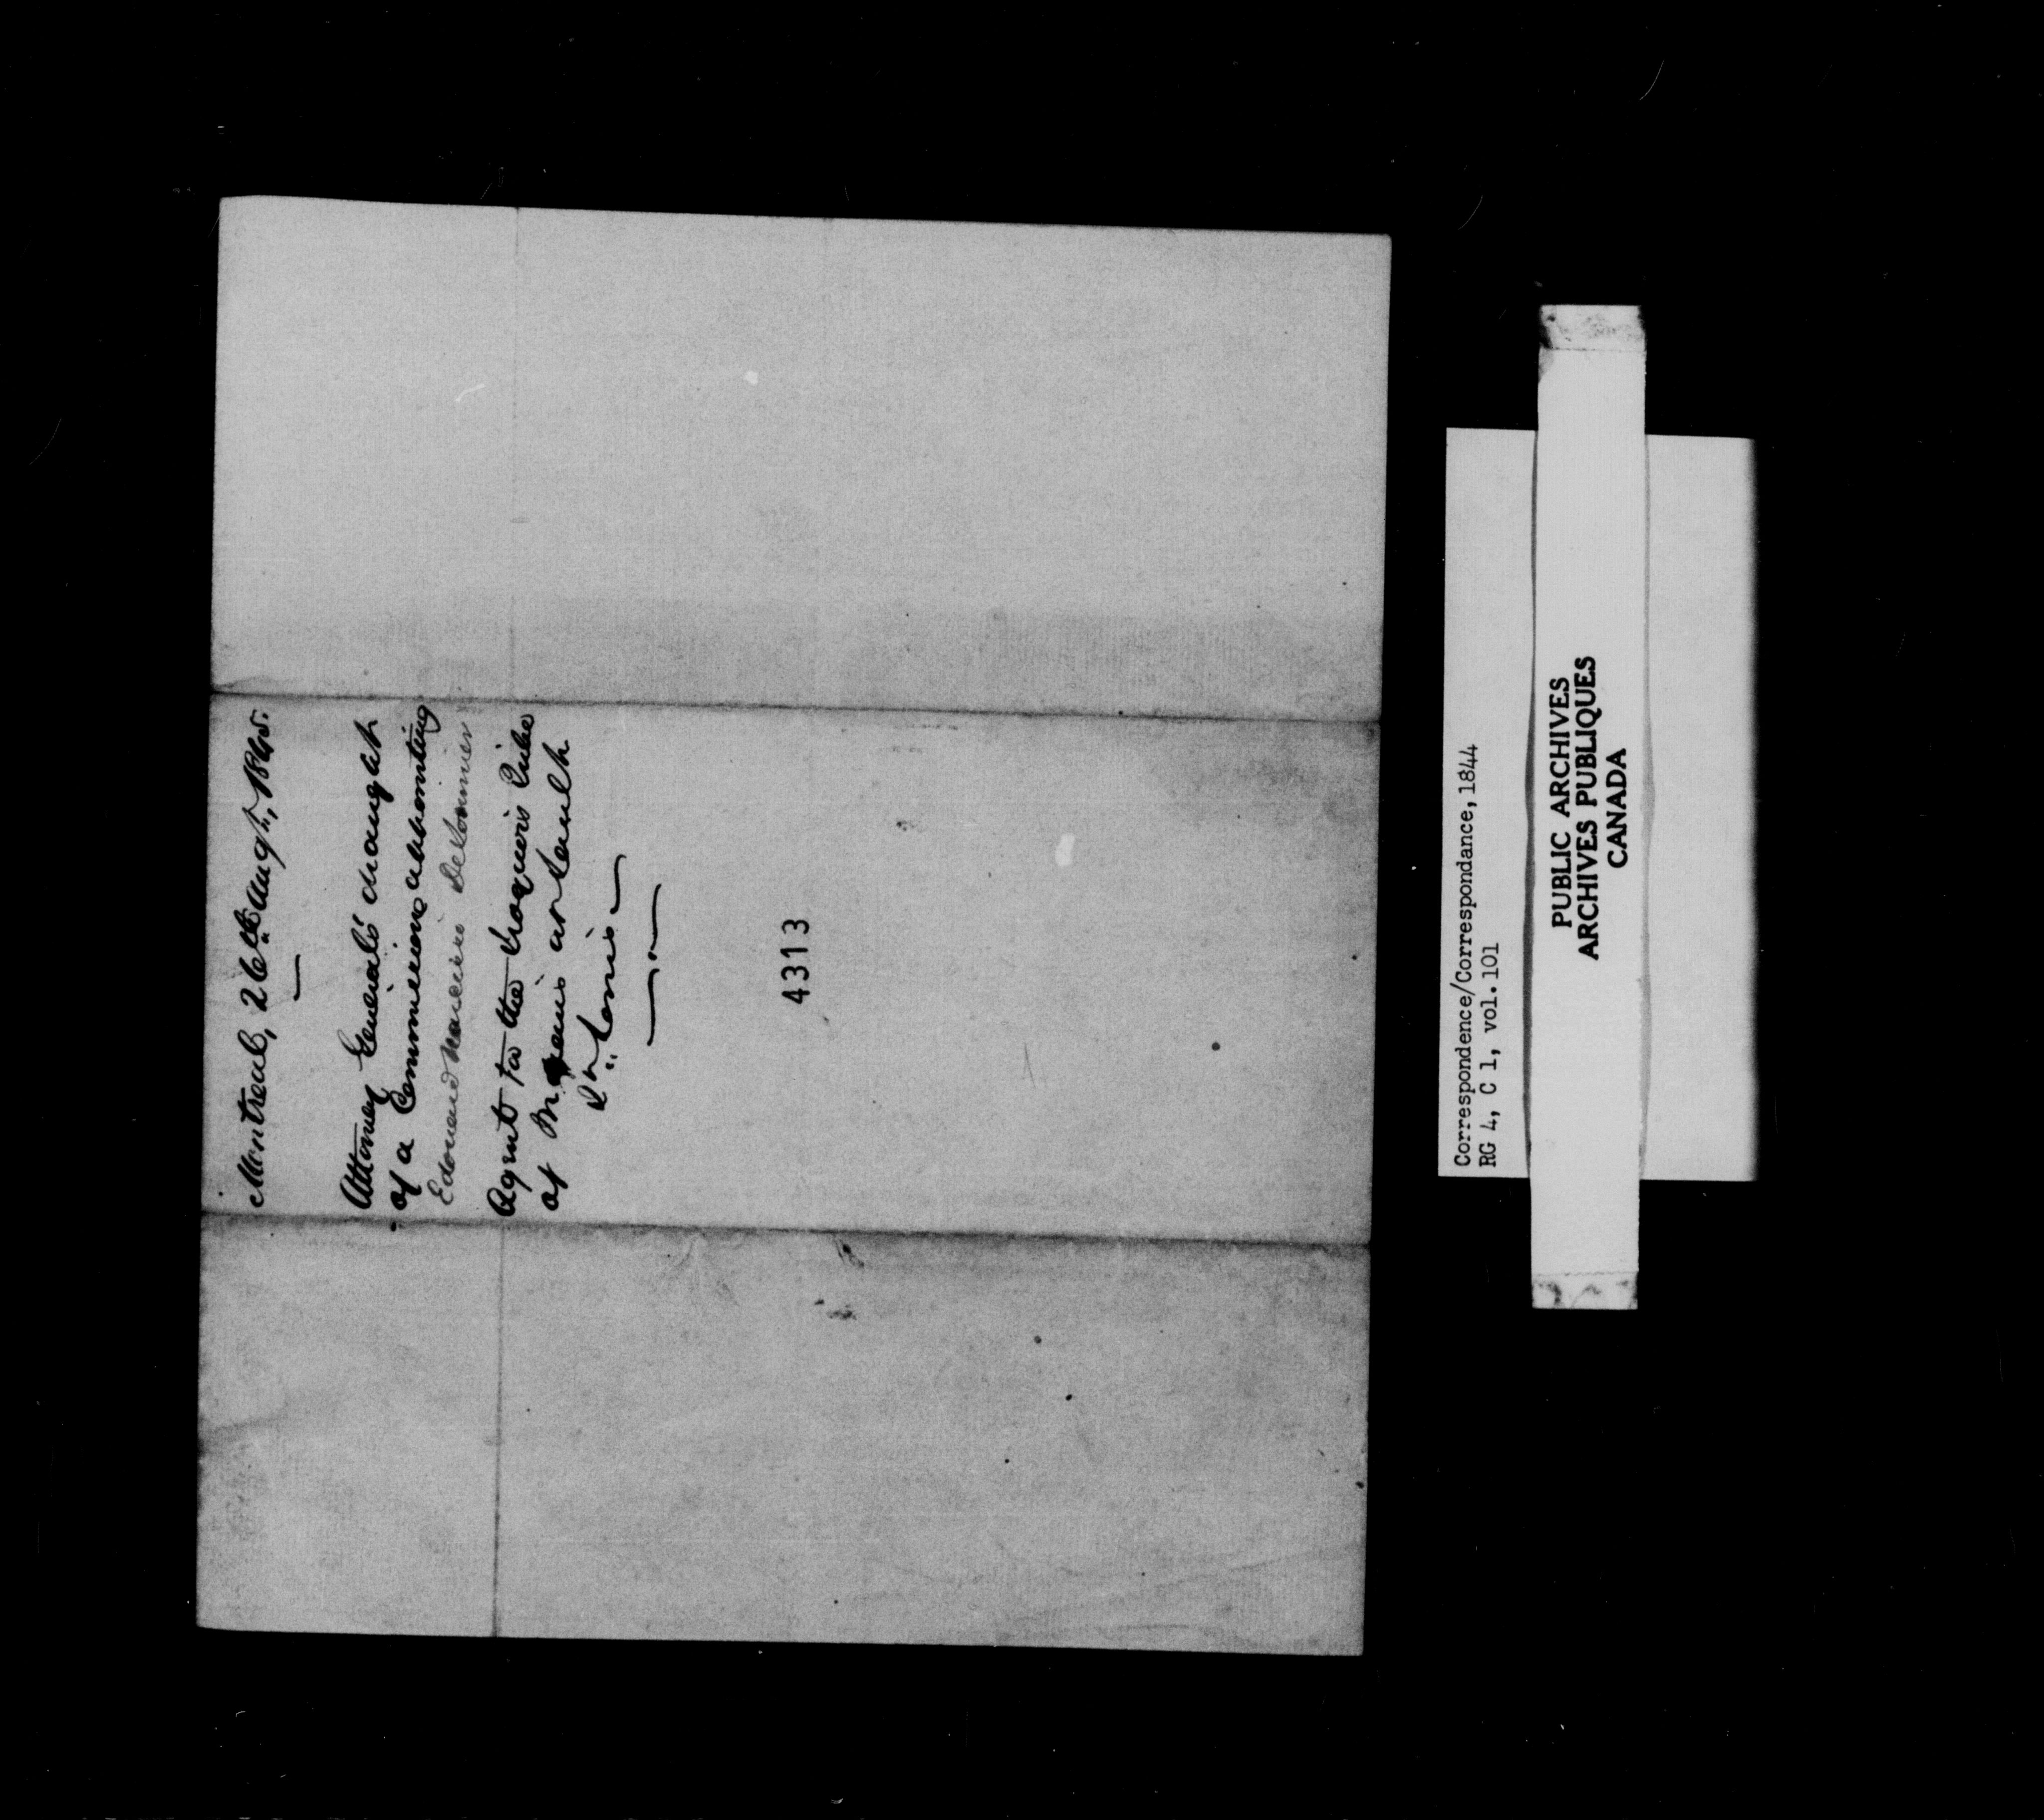 Montreal, 26th Augt, 1845.
Attorney General's draught
of a Commission appointing
Edouard Narcisse DeLorimier
Agent to the Iroquois Tribe
of Indians at Sault
St Louis
4313
Correspondence/Correspondance, 1844
RG 4, C 1, vol.101
PUBLIC ARCHIVES
ARCHIVES PUBLIQUES
CANADA